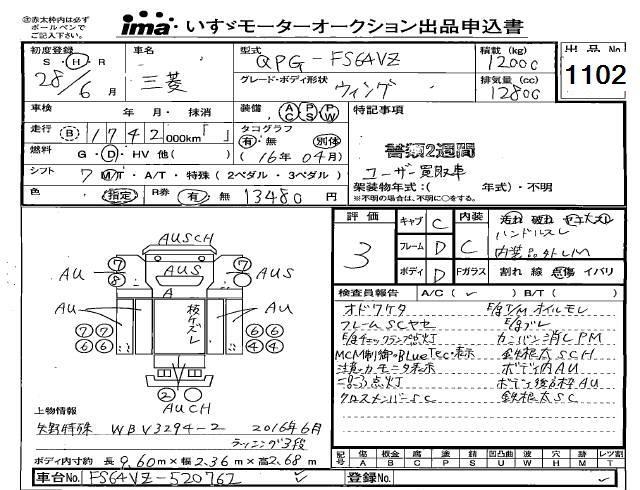 ㊟赤太枠内は必ず
ボールペンで
ご記入下さい。
ima いすゞモーターオークション出品申込書
初度登録 車名 型式 積載 (kg) 出品No
S・H・R 28/6月 三菱 QPG-FS64VZ 12000
グレード・ボディ形状 ウィング 排気量 (cc) 12800
1102
車検 年 月・ 抹消 装備 AC PS PW 特記事項
走行 B 1742 000km「 」 タコグラフ 有・無 別体
燃料 G・D・HV 他( ) (16年04月) 書類2週間
シフト 7 MT・A/T・特殊(2ペダル・3ペダル) ユーザー買取車
色 (指定) R券 有 無 13480 円 架装物年式:( 年式)・不明
※不明の場合は、不明に○をする。
評価 キャブ C 内装 汚れ 破れ ヤニ大スレ
3 フレーム D C ハンドルスレ
内装品外しM
ボディ D Fガラス 割れ 線 点傷 イバリ
AUSCH
AUS
A
AU AU
AU AU
枝ケズレ
7 7
8
7 7 6 6
6 6 4 4
2
AUCH
検査員報告 A/C(✓) B/T( )
オドワケタ E/g T/M オイルモレ
フレームSCヤセ E/gブレ
E/gチェックランプ点灯 カンバン消しPM
MCM制御のBlueTec・表示 鉄根太SCH
注意・カモニタ表示 ボディ内AU
点灯 ボディ後枠AU
クロスメンバーSC 鉄根太SC
上物情報
矢野特殊 WBV3294-2 2016年6月
ラッシング3段
ボディ内寸約 長9.60m×幅2.36m×高2.68m
記号 傷 A 板金 B 腐 C 塗 P 錆 S 凹凸曲 U 波 W 穴 H 跡 M レツ割 T
車台No. FS64VZ-520762 ✓ 登録No. ✓